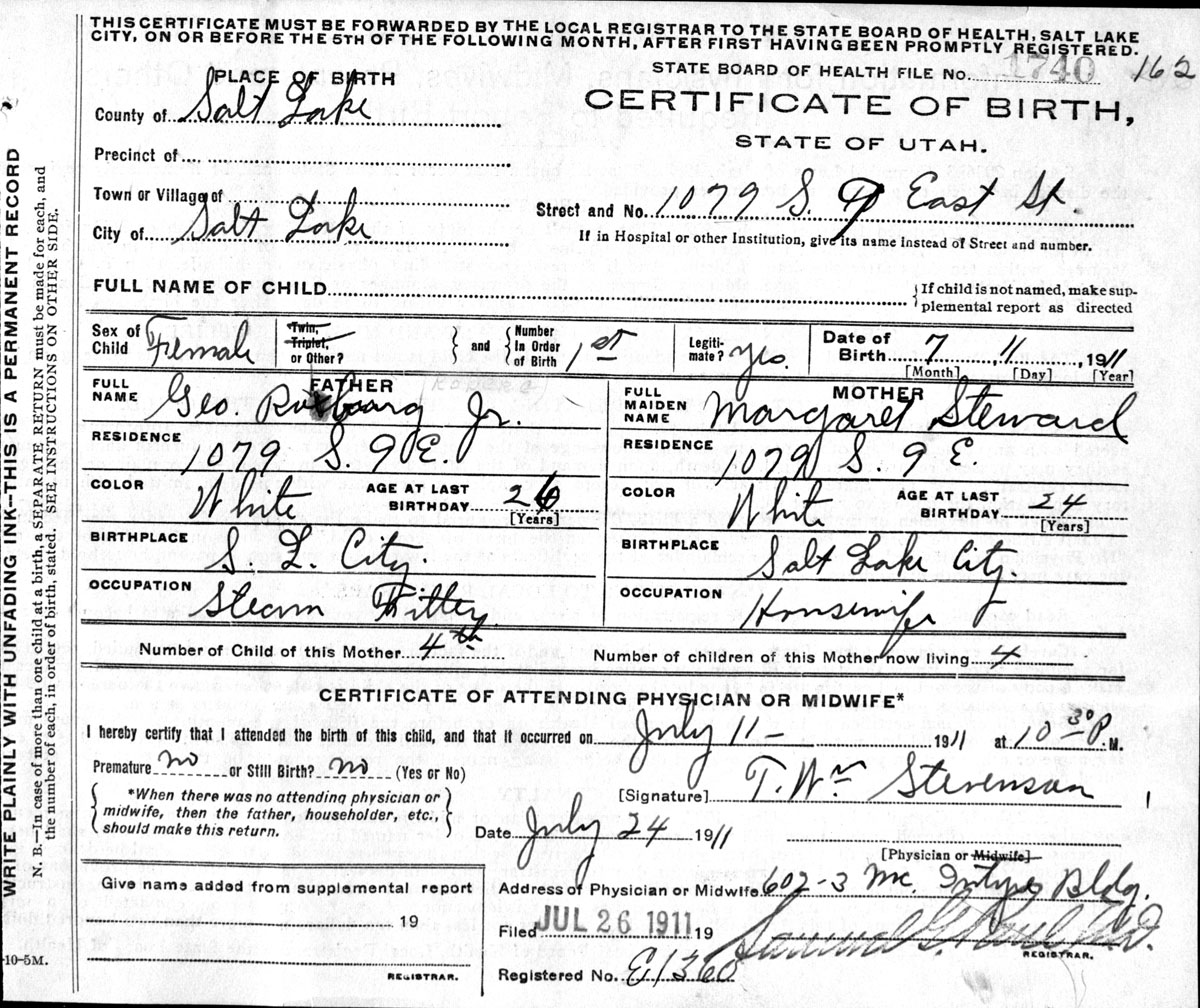 THIS CERTIFICATE MUST BE FORWARDED BY THE LOCAL REGISTRAR TO THE STATE BOARD OF HEALTH, SALT LAKE
CITY, ON OR BEFORE THE 5TH OF THE FOLLOWING MONTH, AFTER FIRST HAVING BEEN PROMPTLY REGISTERED.
STATE BOARD OF HEALTH FILE No. 1740 162
PLACE OF BIRTH
CERTIFICATE OF BIRTH,
STATE OF UTAH.
County of Salt Lake
Precinct of
Town or Village of
City of Salt Lake
Street and No. 1079 S. 9 East St.
If in Hospital or other Institution, give its name instead of Street and number.
FULL NAME OF CHILD
If child is not named, make sup-
plemental report as directed
Sex of Child Female
Twin, Triplet, or Other?
and
Number In Order of Birth 1st
Legiti-mate? yes.
Date of Birth 7 11 1911
[Month] [Day] [Year]
FATHER
FULL NAME Geo. Jr.
RESIDENCE 1079 S. 9 E
COLOR White AGE AT LAST BIRTHDAY 26 [Years]
BIRTHPLACE S. L. City.
OCCUPATION Steam Fitter
MOTHER
FULL MAIDEN NAME Margaret Steward
RESIDENCE 1079 S. 9 E
COLOR White AGE AT LAST BIRTHDAY 24 [Years]
BIRTHPLACE Salt Lake City.
OCCUPATION Housewife
Number of Child of this Mother 4th
Number of children of this Mother now living 4
CERTIFICATE OF ATTENDING PHYSICIAN OR MIDWIFE*
I hereby certify that I attended the birth of this child, and that it occurred on July 11 - 1911 at 10 30 P. M.
Premature no or Still Birth? no (Yes or No)
*When there was no attending physician or
midwife, then the father, householder, etc.,
should make this return.
[Signature] T. Wm Stevenson
Date July 24 1911
[Physician or Midwife]
Give name added from supplemental report
19
REGISTRAR.
Address of Physician or Midwife 602-3 Mc. Intyre Bldg.
Filed JUL 26 1911 19
REGISTRAR.
Registered No. E1360
WRITE PLAINLY WITH UNFADING INK--THIS IS A PERMANENT RECORD
N. B.--In case of more than one child at a birth, a SEPARATE RETURN must be made for each, and
the number of each, in order of birth, stated. SEE INSTRUCTIONS ON OTHER SIDE.
-10-5M.